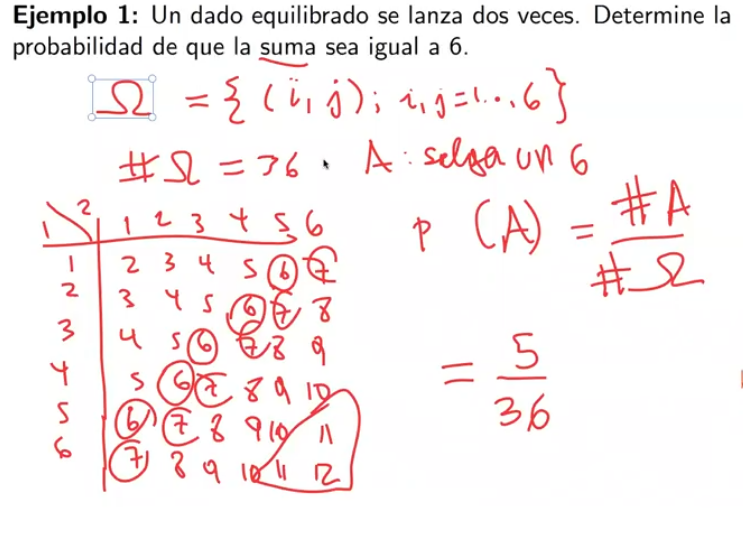 Ejemplo 1: Un dado equilibrado se lanza dos veces. Determine la
probabilidad de que la suma sea igual a 6.
Ω = { (i, j); i, j = 1..., 6 }
#Ω = 36. A: salga un 6
1\2 | 1 2 3 4 5 6
1 | 2 3 4 5 6 7
2 | 3 4 5 6 7 8
3 | 4 5 6 7 8 9
4 | 5 6 7 8 9 10
5 | 6 7 8 9 10 11
6 | 7 8 9 10 11 12
P (A) = #A / #Ω
= 5 / 36